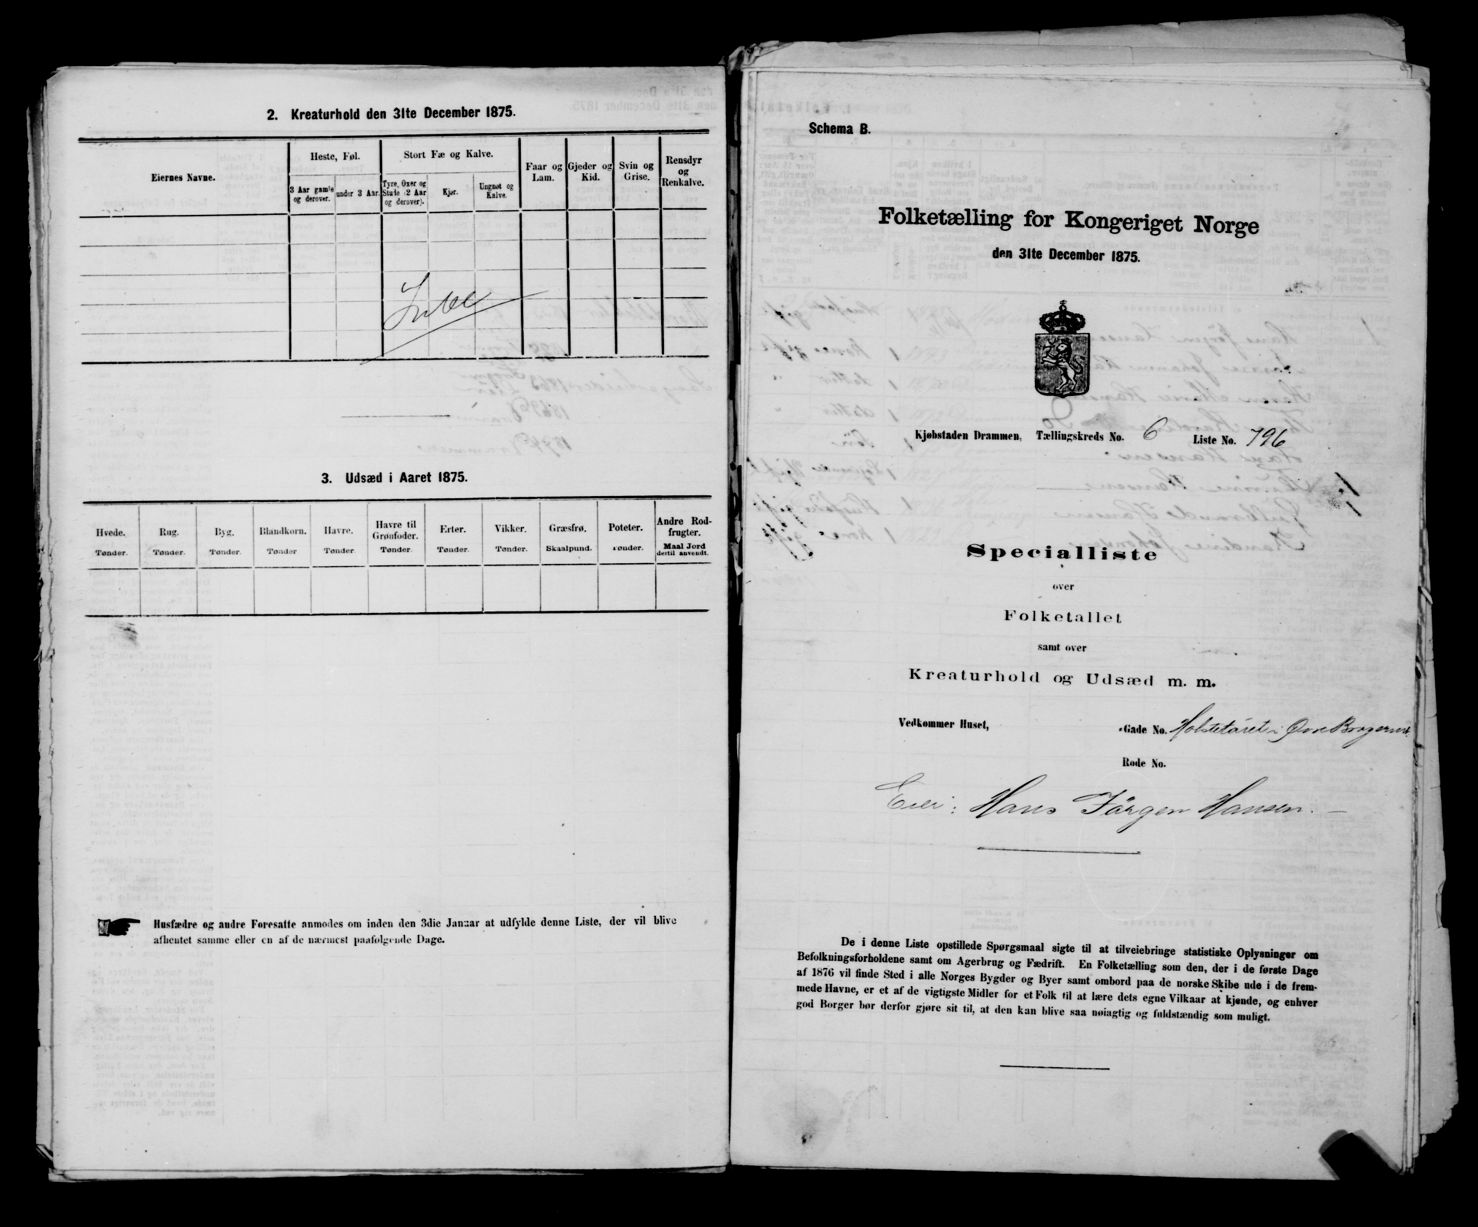 2. Kreaturhold den 31te December 1875.
Eiernes Navne.
Heste, Føl.
Stort Fæ og Kalve.
Faar og Lam.
Gjeder og Kid.
Svin og Grise.
Rensdyr og Renkalve.
3 Aar gamle og derover.
under 3 Aar.
Tyre, Oxer og Stude (2 Aar og derover).
Kjør.
Ungnøt og Kalve.
3. Udsæd i Aaret 1875.
Hvede. Rug. Byg. Blandkorn. Havre. Havre til Grønfoder. Erter. Vikker. Græsfrø. Poteter. Andre Rodfrugter.
Tønder. Tønder. Tønder. Tønder Tønder Tønder. Tønder. Tønder. Skaalpund. Tønder. Maal Jord dertil anvendt.
Husfædre og andre Foresatte anmodes om inden den 3die Januar at udfylde denne Liste, der vil blive
afhentet samme eller en af de nærmest paafølgende Dage.
Schema B.
Folketælling for Kongeriget Norge
den 31te December 1875.
Kjøbstaden Drammen, Tællingskreds No. 6 Liste No. 796
Specialliste
over
Folketallet
samt over
Kreaturhold og Udsæd m. m.
Vedkommer Huset, Gade No.
Rode No.
Eier: Hans Jörgen Hansen.
De i denne Liste opstillede Spørgsmaal sigte til at tilveiebringe statistiske Oplysninger om
Befolkningsforholdene samt om Agerbrug og Fædrift. En Folketælling som den, der i de første Dage
af 1876 vil finde Sted i alle Norges Bygder og Byer samt ombord paa de norske Skibe ude i de frem-
mede Havne, er et af de vigtigste Midler for et Folk til at lære dets egne Vilkaar at kjende, og enhver
god Borger bør derfor gjøre sit til, at den kan blive saa nøiagtig og fuldstændig som muligt.